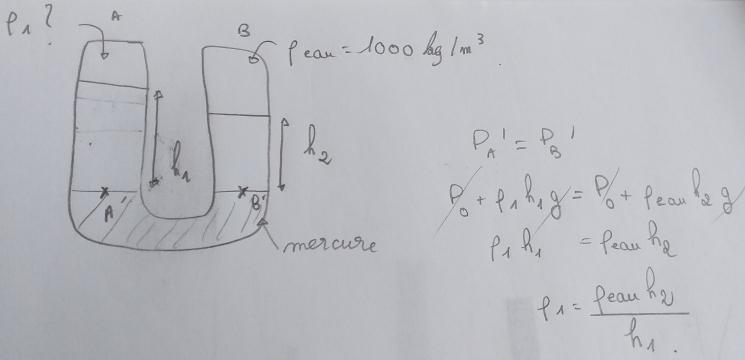 ρ₁ ?
A
B
ρeau = 1000 kg/m³.
h₁
h₂
A'
B'
mercure
P_A' = P_B'
P₀ + ρ₁ h₁ g = P₀ + ρeau h₂ g
ρ₁ h₁ = ρeau h₂
ρ₁ = ρeau h₂
h₁.